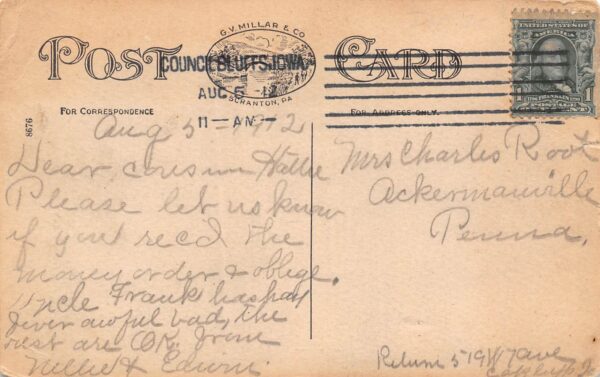 POST CARD
G.V. MILLAR & CO.
SCRANTON, PA.
COUNCIL BLUFFS, IOWA
AUG 5 -12
11-AM-
UNITED STATES OF AMERICA
FOR CORRESPONDENCE
FOR ADDRESS ONLY.
8676
Aug 5 - 1912
Dear cousin Hallie
Please let us know
if you rec'd the
money order & oblige.
Uncle Frank has hay
fever awful bad, the
rest are OK. from
Nellie & Edwin.
Mrs Charles Root
Ackermanville
Penna.
Return 519 W 17 ave